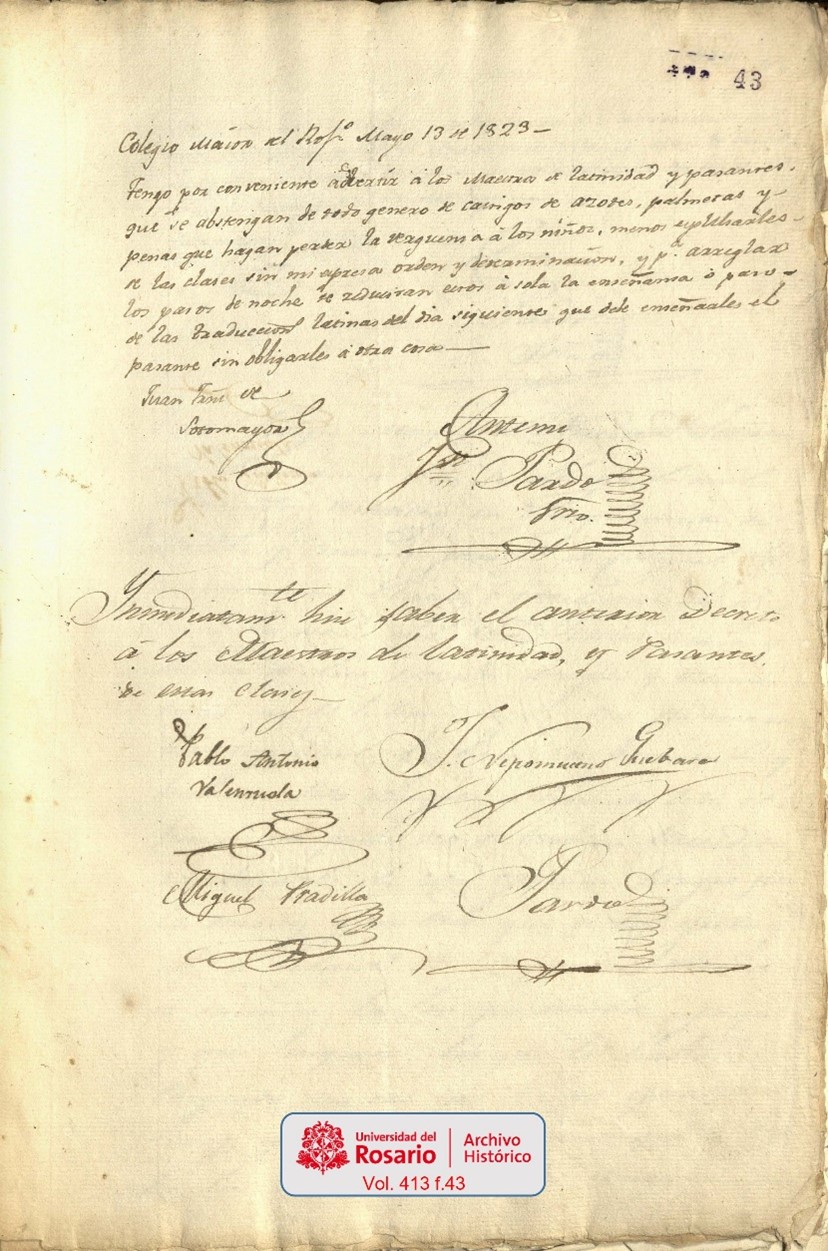 43
Colegio Maior del Ros.º Mayo 13 de 1823—
Tengo por conveniente advertir à los Maestros de latinidad y pasantes,
que se abstengan de todo genero de castigos de azotes, palmetas y
penas que hagan perder la verguensa à los niños, menos expulsarles
de las clases sin mi expresa orden y determinacion, y p.ª arreglar
los pasos de noche se reduciran estos à sola la enseñansa ò paso
de las traduccion.s latinas del dia siguiente que debe enseñarles el
pasante sin obligarles à otra cosa—
Juan Fern de
Sotomayor
Antemi
Pardo
Srio.
Ynmediatam.te hise saber el anterior Decreto
à los Maestros de latinidad, y Pasantes
de estas clases—
Pablo Antonio
Valensuela
J. Nepomuceno Guebara
Miguel Pradilla
Pardo
Universidad del
Rosario
Archivo
Histórico
Vol. 413 f.43